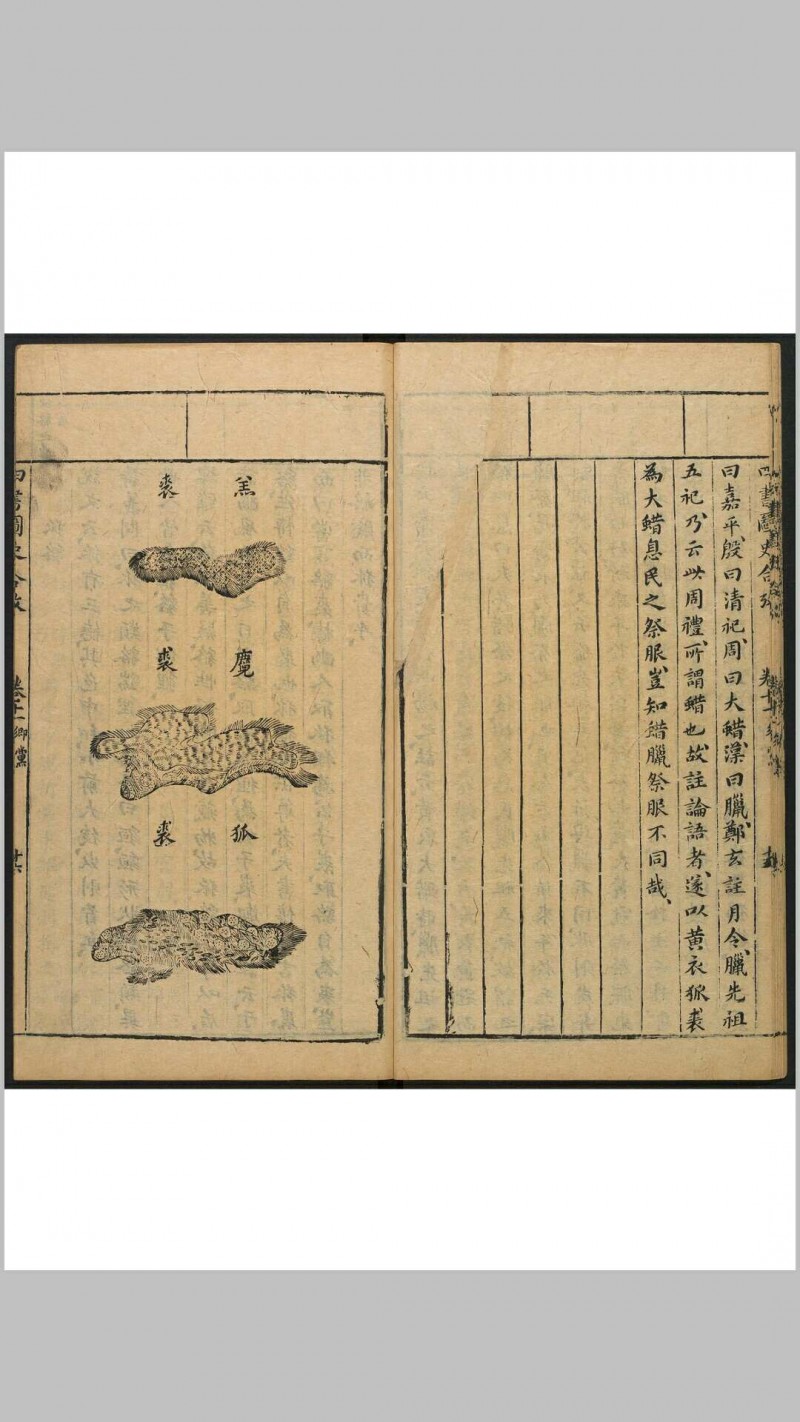 曰嘉平、殷曰清祀、周曰大蜡、漢曰臘、鄭玄註月令、臘先祖
五祀、乃云此周禮、所謂蜡也、故註論語者、遂以黄衣狐裘
為大蜡息民之祭服、豈知蜡臘祭服不同哉、
羔裘
麑裘
狐裘
四書圖史合攷
卷十一鄉黨
廿六